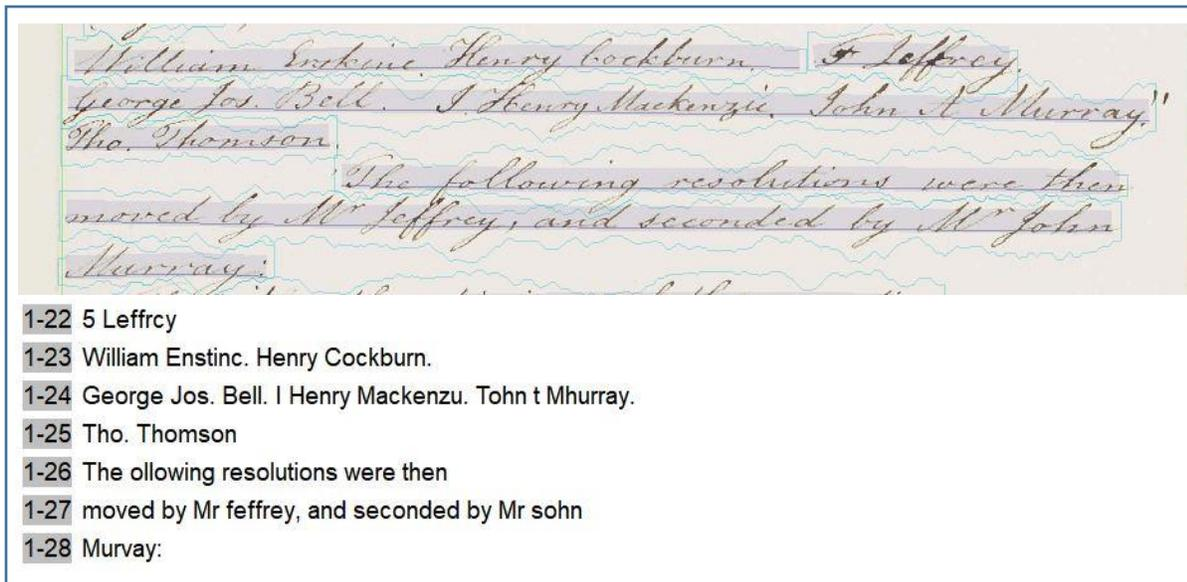 William Erskine. Henry Cockburn. F Jeffrey.
George Jos. Bell. J. Henry Mackenzie. John A Murray."
Tho. Thomson.
The following resolutions were then
moved by Mr Jeffrey, and seconded by Mr John
Murray:
1-22 5 Leffrcy
1-23 William Enstinc. Henry Cockburn.
1-24 George Jos. Bell. I Henry Mackenzu. Tohn t Mhurray.
1-25 Tho. Thomson
1-26 The ollowing resolutions were then
1-27 moved by Mr feffrey, and seconded by Mr sohn
1-28 Murvay: